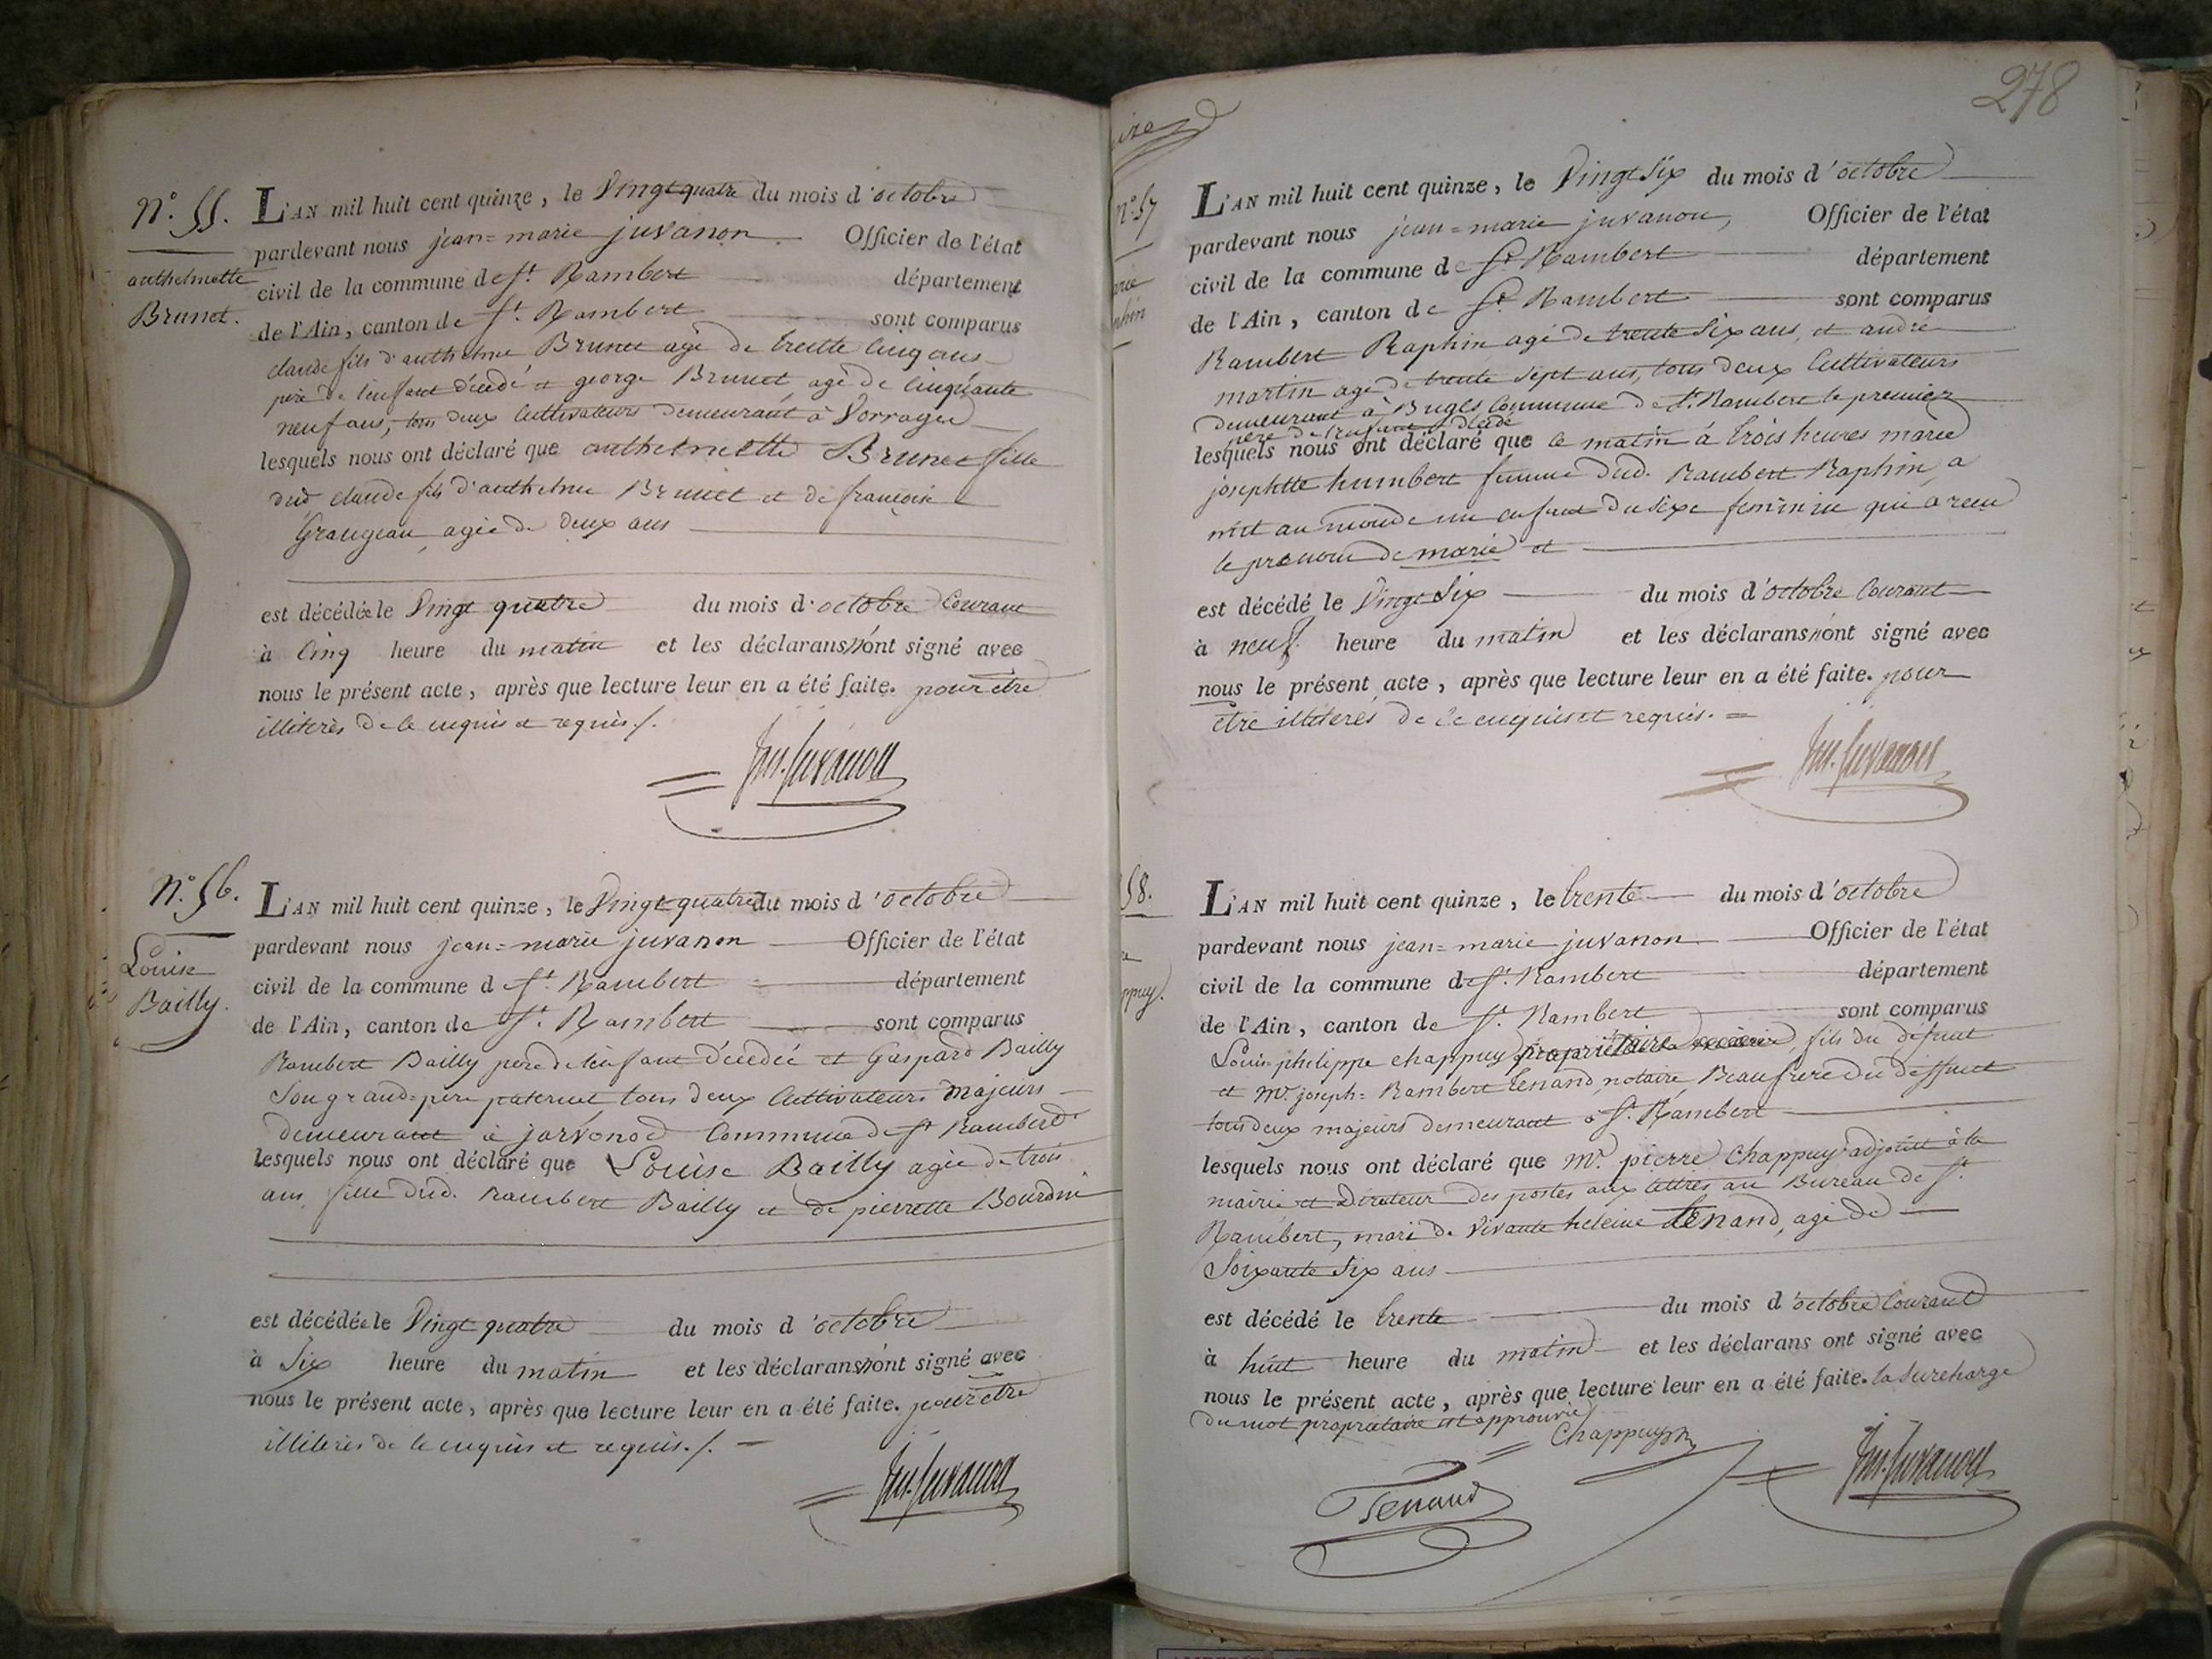 N.° 55.
anthelmette
Brunet.
L'AN mil huit cent quinze, le Vingt quatre du mois d'octobre
pardevant nous jean=marie juvanon Officier de l'état
civil de la commune de St. Rambert département
de l'Ain, canton de St. Rambert sont comparus
claude fils d'anthelme Brunet agé de trente cinq ans
pere de l'enfant décédé et george Brunet agé de cinquante
neuf ans, tous deux Cultivateurs demeurant à Vorrages
lesquels nous ont déclaré que anthelmette Brunet fille
dud claude fils d'anthelme Brunet et de françoise
Grangean, agée de deux ans
est décédée le Vingt quatre du mois d'octobre Courant
à Cinq heure du matin et les déclarans n'ont signé avec
nous le présent acte, après que lecture leur en a été faite. pour être
illiterés de ce enquis et requis ./.
Jm. Juvanon
N.° 56.
Louise
Bailly.
L'AN mil huit cent quinze, le Vingt quatre du mois d'octobre
pardevant nous jean=marie juvanon Officier de l'état
civil de la commune d St. Rambert département
de l'Ain, canton de St. Rambert sont comparus
Rambert Bailly pere de l'enfant décédée et Gaspard Bailly
Son grand=pere paternel tous deux Cultivateurs Majeurs
demeurant à jarvonod Commune de St Rambert
lesquels nous ont déclaré que Louise Bailly agée de trois
ans fille dud. Rambert Bailly et de pierrette Bourdin
est décédée le Vingt quatre du mois d'octobre
à Six heure du matin et les déclarans n'ont signé avec
nous le présent acte, après que lecture leur en a été faite. pour être
illiterés de ce enquis et requis ./.
Jm. Juvanon
278
N° 57
L'AN mil huit cent quinze, le Vingt Six du mois d'octobre
pardevant nous jean=marie juvanon, Officier de l'état
civil de la commune de St Rambert département
de l'Ain, canton de St. Rambert sont comparus
Rambert Raphin agé de trente Six ans, et andré
martin agé de trente sept ans, tous deux Cultivateurs
demeurant à Buges Commune de St. Rambert le premier
pere de l'enfant décédé
lesquels nous ont déclaré que ce matin à trois heures marie
josephtte humbert femme dud. Rambert Raphin, a
mit au monde un enfant du Sexe feminin qui a reçu
le prenom de marie et
est décédé le Vingt Six du mois d'octobre Courant
à neuf heure du matin et les déclarans n'ont signé avec
nous le présent acte, après que lecture leur en a été faite. pour
être illiterés de ce enquis et requis. =
Jm. Juvanon
58.
L'AN mil huit cent quinze, le trente du mois d'octobre
pardevant nous jean=marie juvanon Officier de l'état
civil de la commune de St. Rambert département
de l'Ain, canton de St. Rambert sont comparus
Louis philippe chappuy propriétaire, fils du défunt
et Mr. joseph=Rambert Tenand, notaire, Beaufrere du deffunt
tous deux majeurs demeurant à St. Rambert
lesquels nous ont déclaré que Mr. pierre Chappuy adjoint à la
mairie et Directeur des postes aux lettres au Bureau de St.
Rambert, mari de Vivante heleine Tenand, agé de
Soixante Six ans
est décédé le trente du mois d'octobre Courant
à huit heure du matin et les déclarans ont signé avec
nous le présent acte, après que lecture leur en a été faite. la Surcharge
du mot propriétaire est approuvée
Chappuy
Tenand
Jm. Juvanon